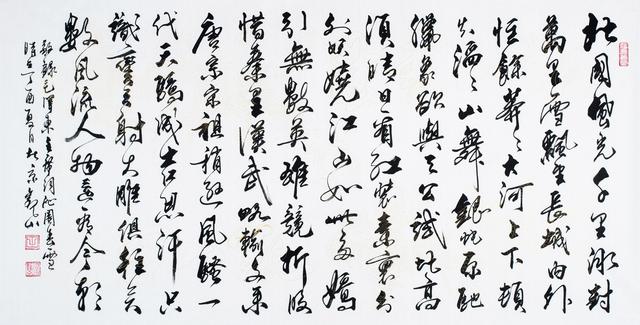 北国風光千里冰封
萬里雪飄望长城内外
惟餘莽々大河上下頓
失滔々山舞银蛇原馳
臘象欲與天公試比高
須晴日看红裝素裹分
外妖嬈江山如此多嬌
引無數英雄競折腰
惜秦皇漢武略輸文采
唐宗宋祖稍遜風騷一
代天驕成吉思汗只
識彎弓射大雕俱往矣
數風流人物還看今朝
敬錄毛澤東主席詞沁園春雪
時在丁酉夏月北京